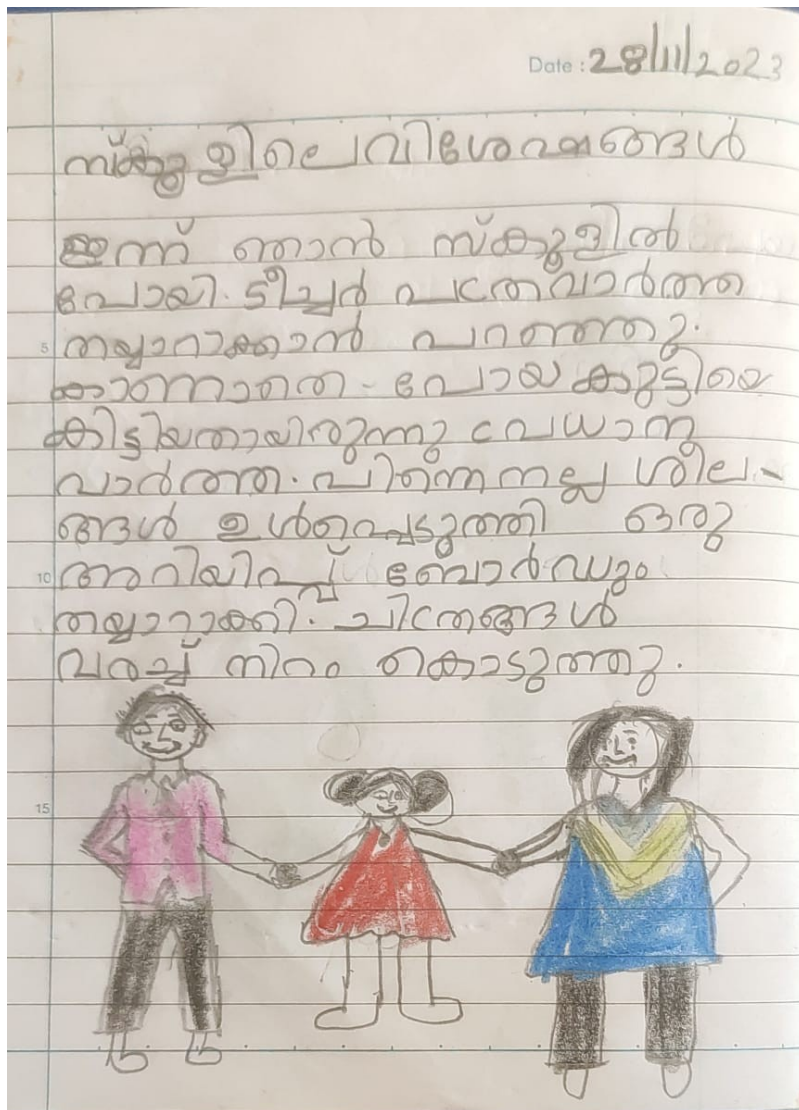 Date : 28/11/2023
സ്കൂളിലെ വിശേഷങ്ങൾ
ഇന്ന് ഞാൻ സ്കൂളിൽ
പോയി. ടീച്ചർ പത്രവാർത്ത
5 തയ്യാറാക്കാൻ പറഞ്ഞു.
കാണാതെ - പോയ കുട്ടിയെ
കിട്ടിയതായിരുന്നു പ്രധാന
വാർത്ത. പിന്നെ നല്ല ശീല-
ങ്ങൾ ഉൾപ്പെടുത്തി ഒരു
10 അറിയിപ്പ് ബോർഡും
തയ്യാറാക്കി. ചിത്രങ്ങൾ
വരച്ച് നിറം കൊടുത്തു.
15